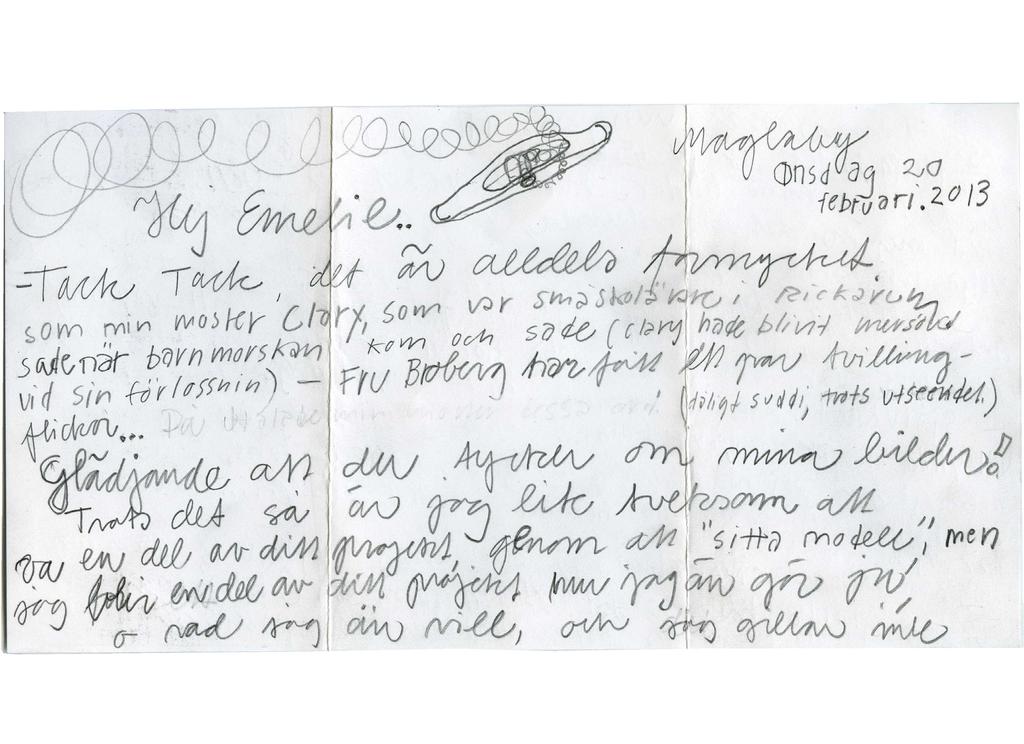 Maglaby
Onsdag 20
februari.2013
Hej Emelie..
-Tack Tack, det är alldels förmycket.
som min moster Clary, som var småskolärare i Rickarum,
sade när barnmorskan kom och sade (Clary hade blivit
vid sin förlossnin) - Fru Broberg har fått ett par tvilling-
flickor... Då uttalade min moster dessa ord. (dåligt suddi, trots utseendet.)
Glädjande att du tycker om mina bilder!
Trots det så är jag lite tveksam att
va en del av ditt projekt, genom att "sitta modell", men
jag blir en del av ditt projekt hur jag än gör ju,
o vad jag än vill, och jag gillar inte